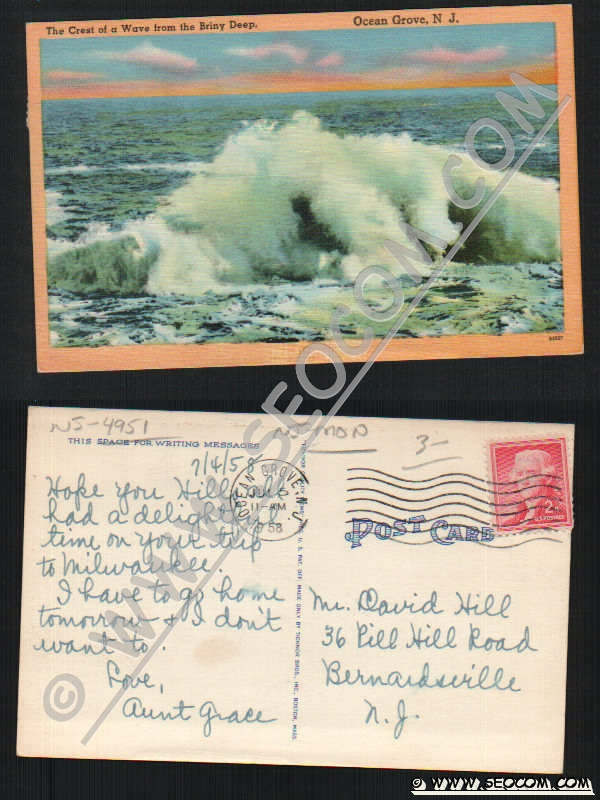 The Crest of a Wave from the Briny Deep.
Ocean Grove, N. J.
© WWW.SEOCOM.COM
NJ-4951
3-
THIS SPACE FOR WRITING MESSAGES
7/4/58
Hope you Hills
had a delight
time on your trip
to Milwaukee
I have to go home
tomorrow & I don't
want to.
Love,
Aunt Grace
OCEAN GROVE, N.J.
11-AM
58
POST CARD
2¢
U.S. POSTAGE
Mr. David Hill
36 Pill Hill Road
Bernardsville
N. J.
© WWW.SEOCOM.COM